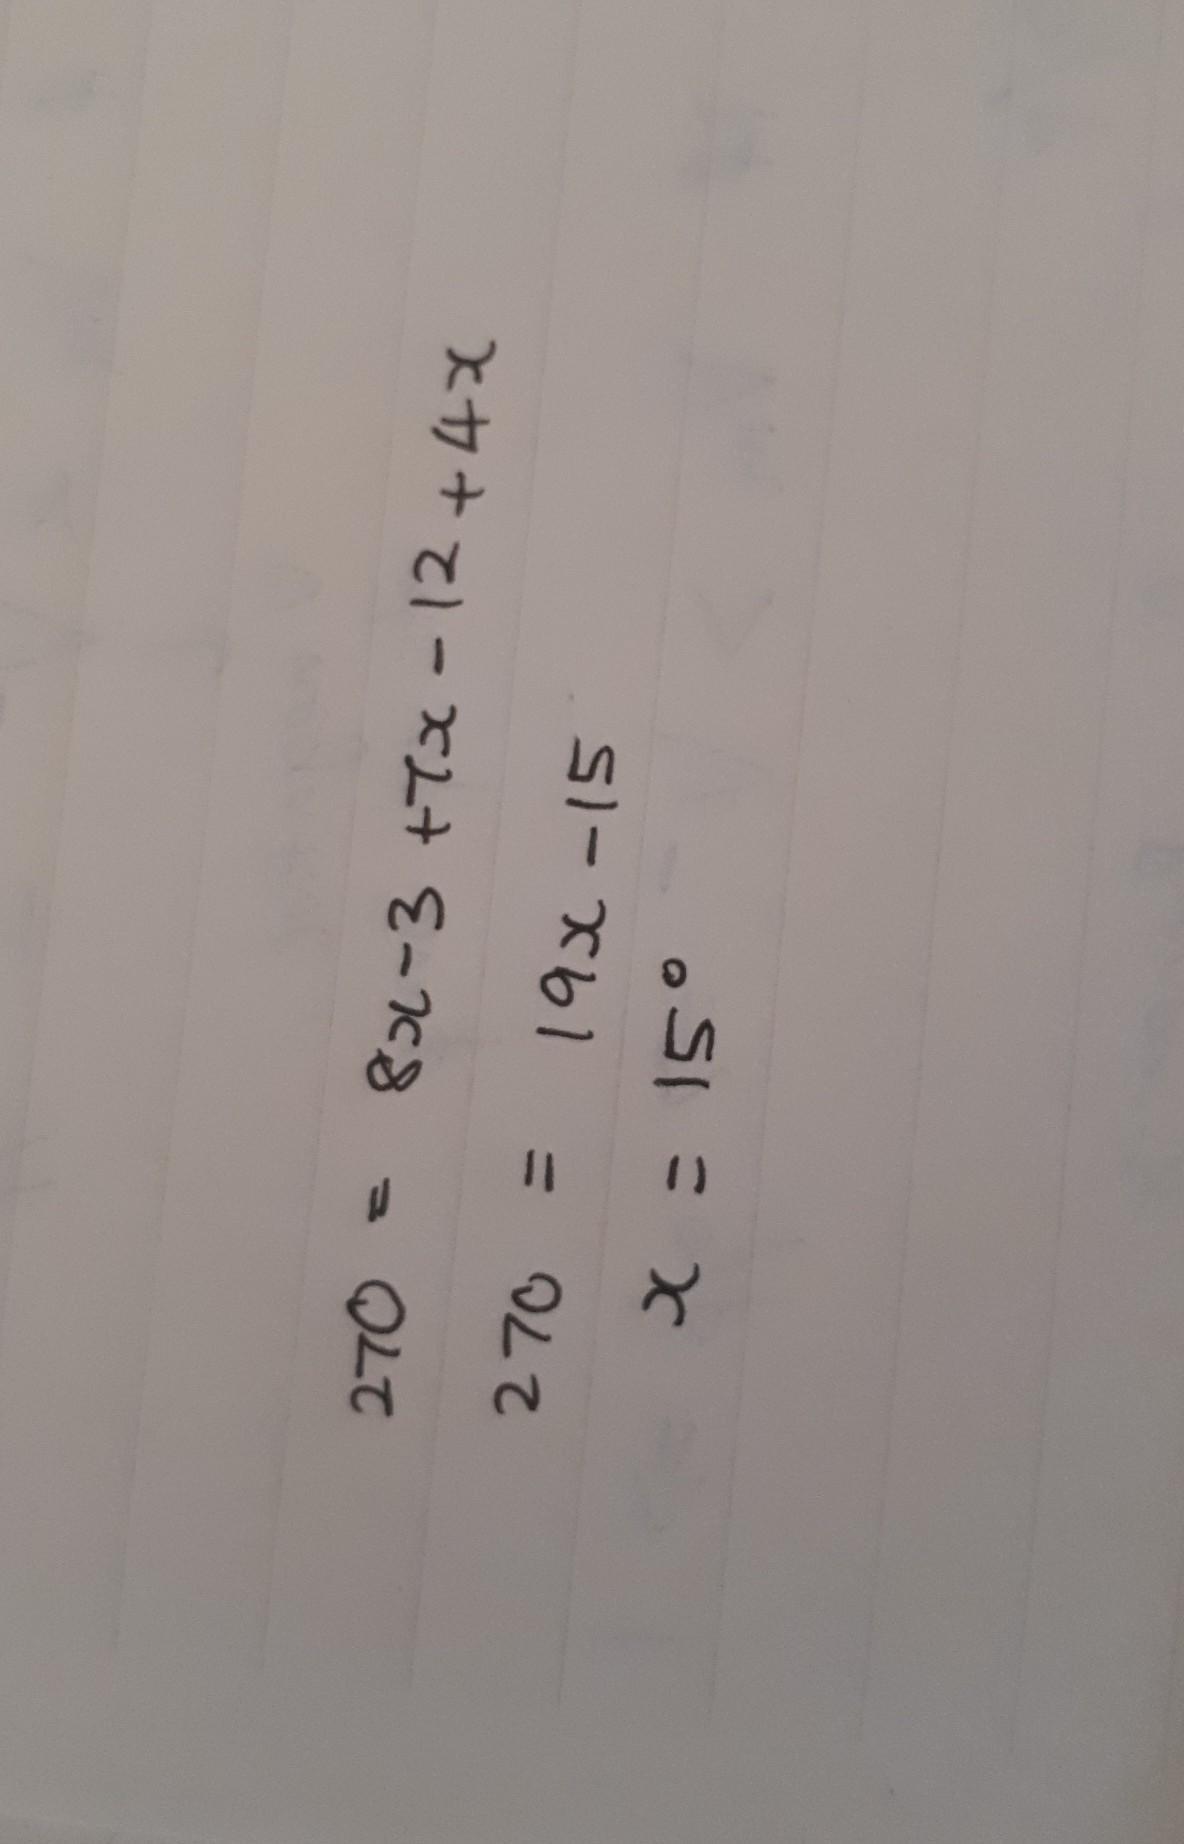 270 = 8x-3 +7x - 12 + 4x
270 = 19x - 15
x = 15°